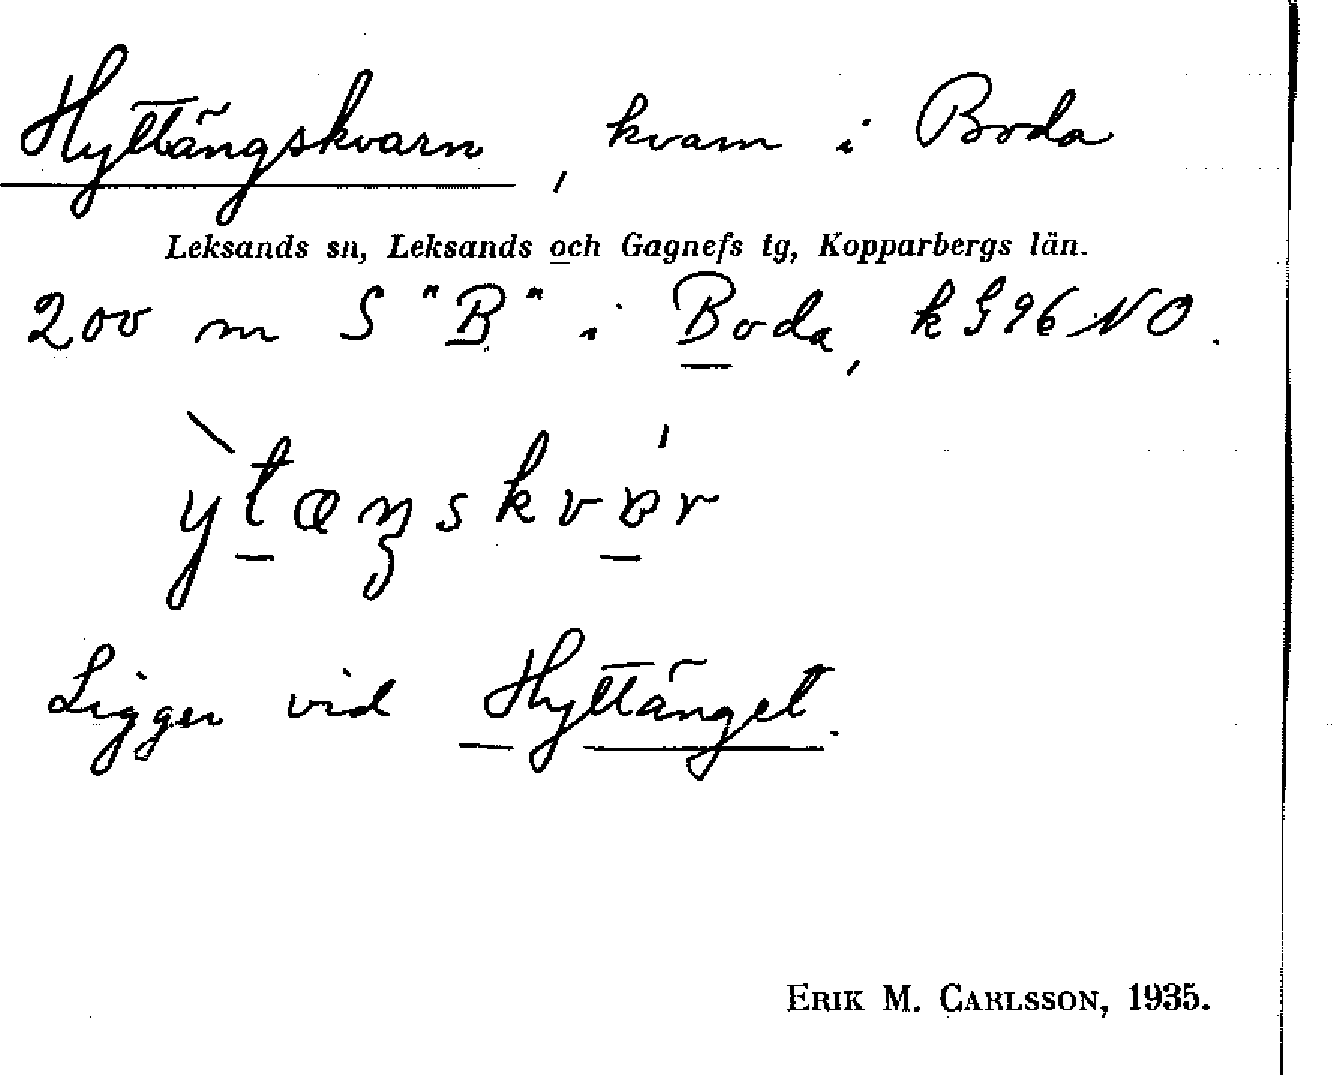 Hyttängskvarn, kvarn i Boda
Leksands sn, Leksands och Gagnefs tg, Kopparbergs län.
200 m S "B" i Boda, k G 96 NO.
Ligger vid Hyttänget.
ERIK M. CARLSSON, 1935.